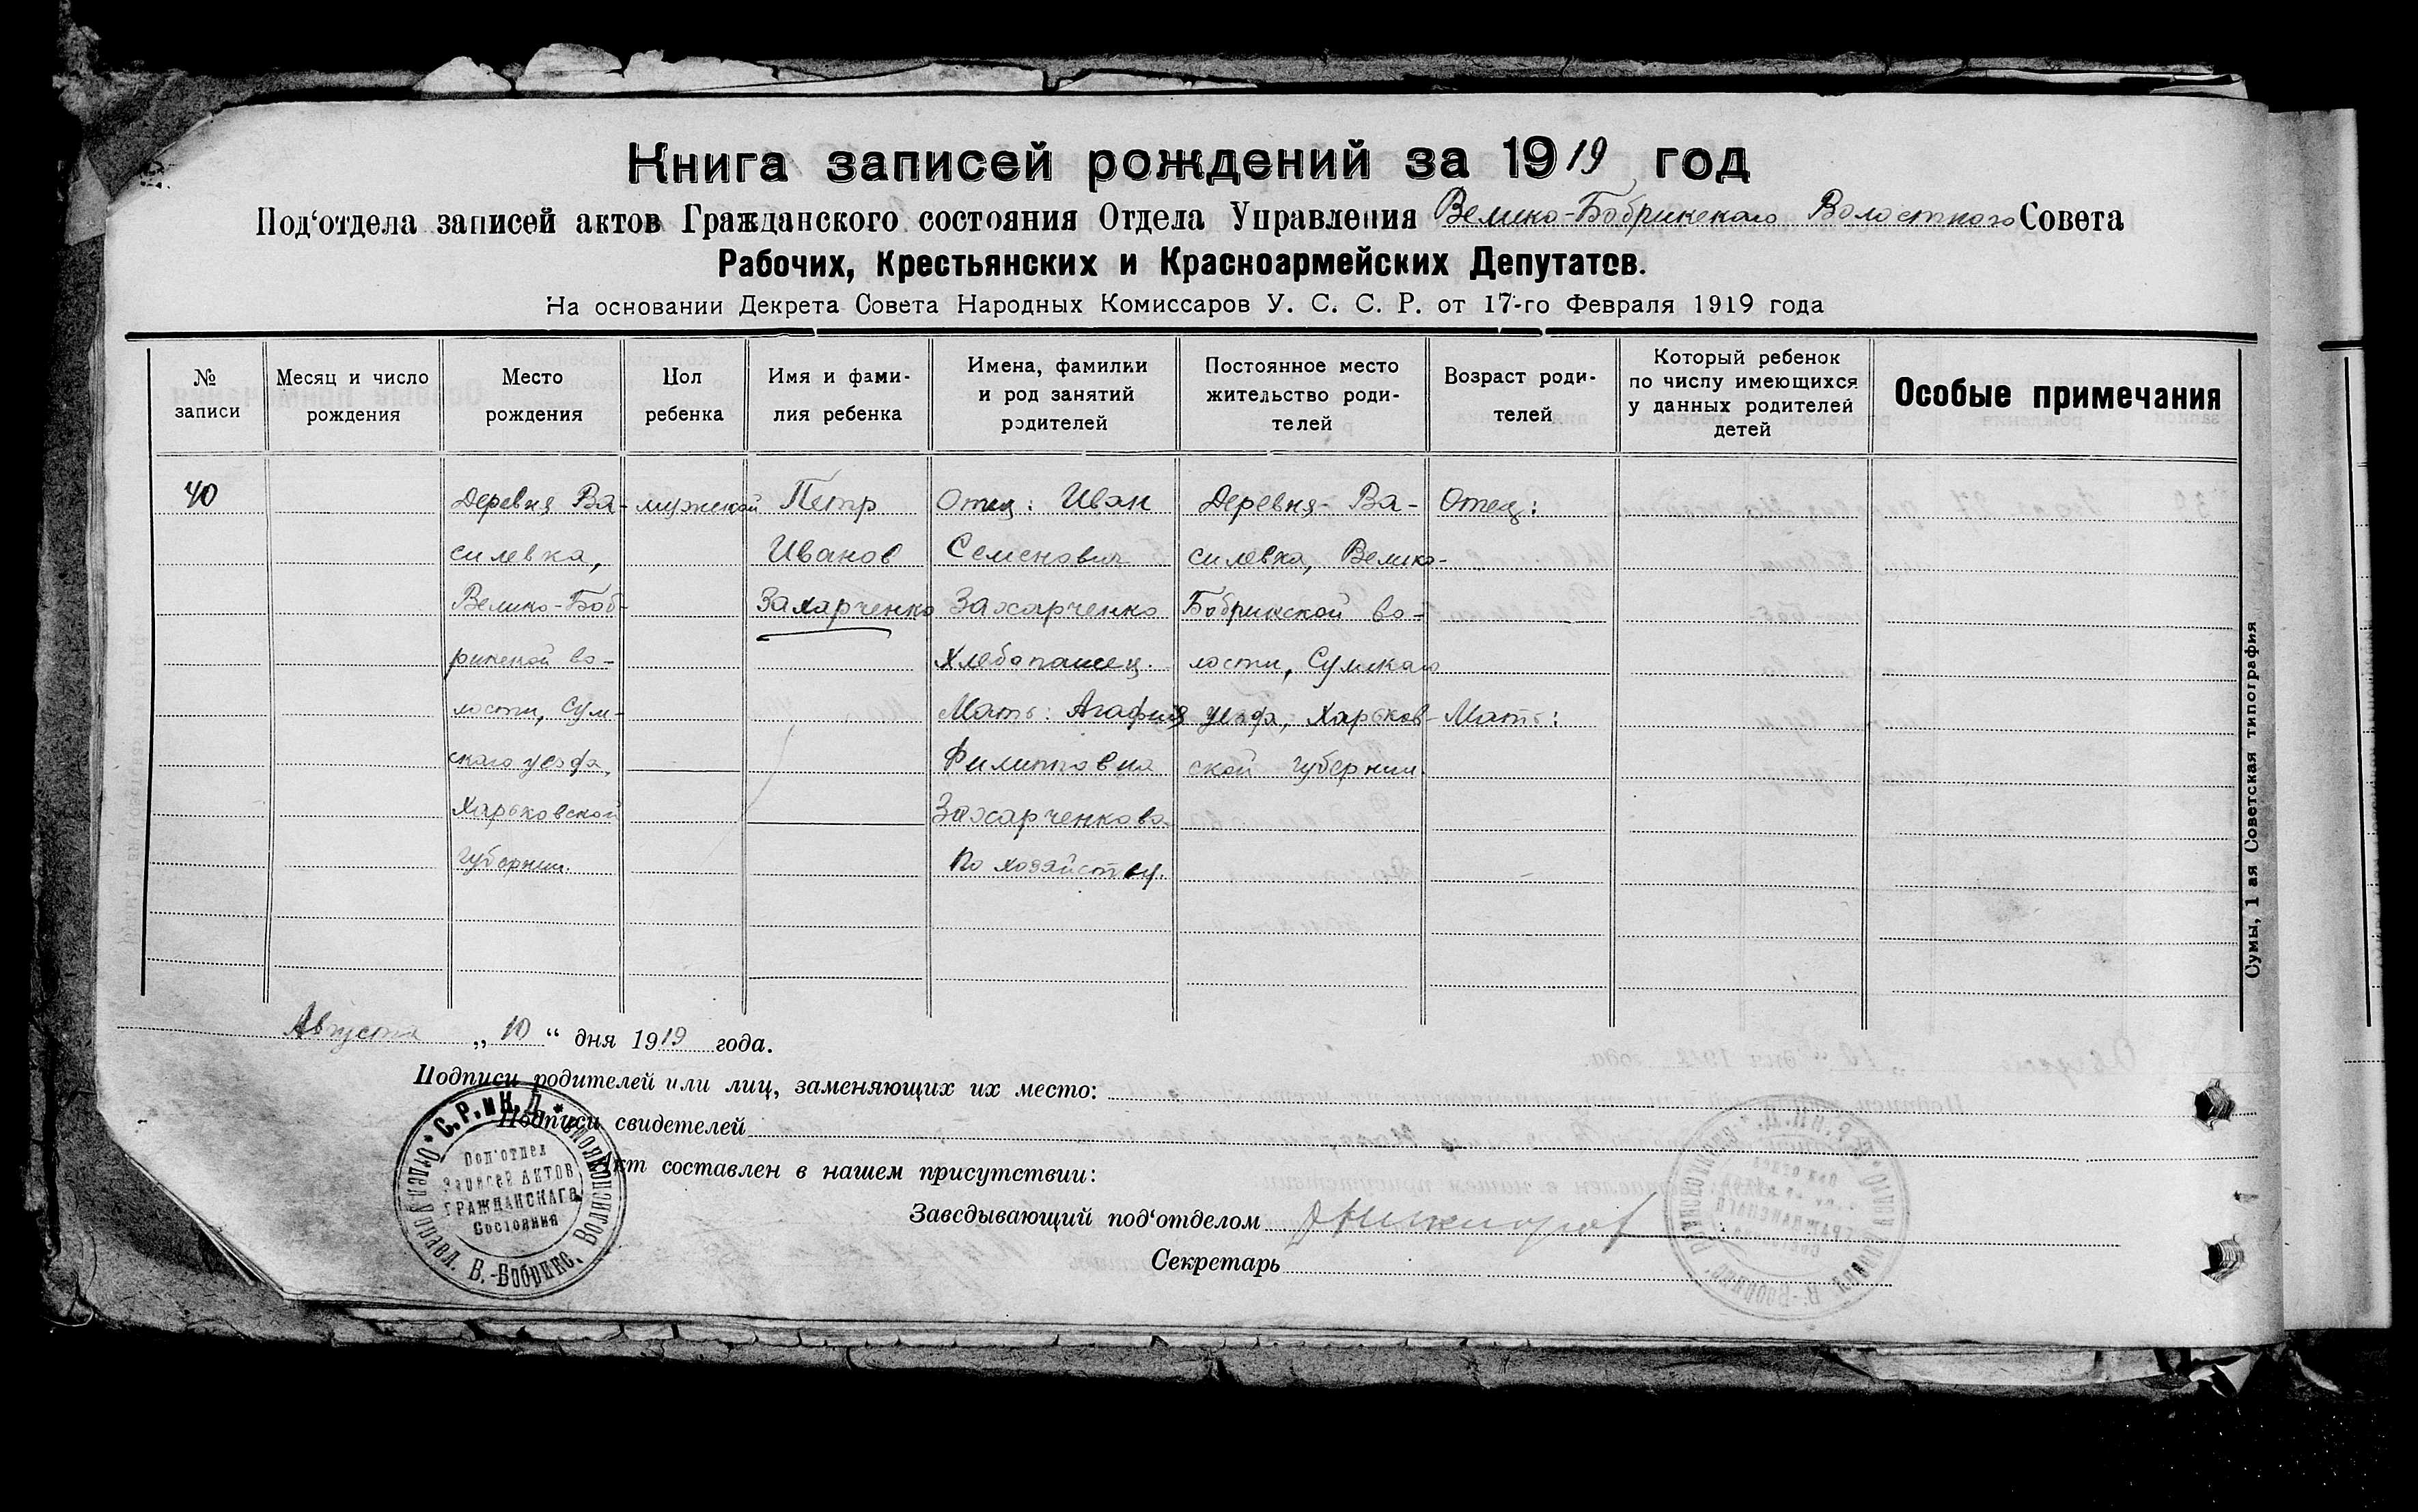 Книга записей рождений за 1919 год
Под‘отдела записей актов Гражданского состояния Отдела Управления Велико-Бобрикскаго Волостного Совета
Рабочих, Крестьянских и Красноармейских Депутатов.
На основании Декрета Совета Народных Комиссаров У. С. С. Р. от 17-го Февраля 1919 года
№ записи
Месяц и число рождения
Место рождения
Пол ребенка
Имя и фами-
лия ребенка
Имена, фамилии
и род занятий
родителей
Постоянное место
жительство роди-
телей
Возраст роди-
телей
Который ребенок
по числу имеющихся
у данных родителей
детей
Особые примечания
40
Деревня Ва-
силевка,
Велико-Боб-
рикской во-
лости, Сум-
скаго уезда,
Харьковской
губернии.
мужской
Петр
Иванов
Захарченко
Отец: Иван
Семенович
Захарченко
Хлебопашец.
Мать: Агафия
Филипповна
Захарченкова.
По хозяйству.
Деревня Ва-
силевка, Велико-
Бобрикской во-
лости, Сумскаго
уезда, Харьков-
ской губернии.
Отец:
Мать:
Августа „10“ дня 1919 года.
Подписи родителей или лиц, заменяющих их место:
Подписи свидетелей
Акт составлен в нашем присутствии:
Заведывающий под‘отделом
Секретарь
С.Р. и К.Д.
Отдел Управл. В.-Бобрикс. Волисполкома
Под‘отдел
Записей Актов
Гражданскаго
Состояния
Сумы, 1 ая Советская типография